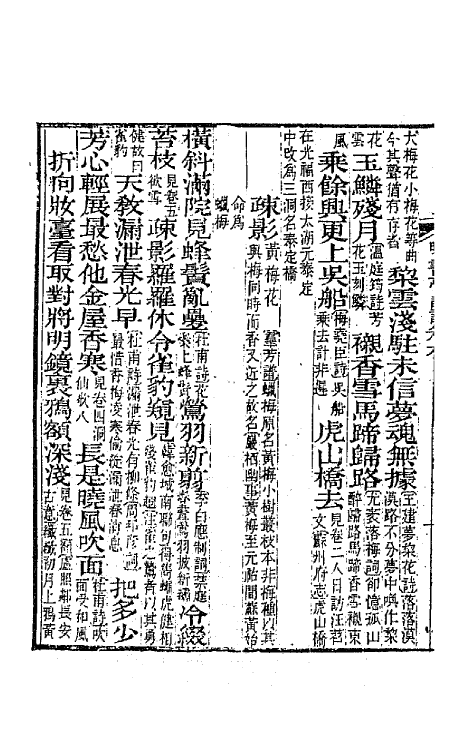 大梅花小梅花等曲
今其聲猶有存者
梨雲淺駐未信夢魂無據
王建夢梨花詩落落漠
漠路不分夢中喚作梨
花雲
玉鱗殘月
溫庭筠詩芳
花玉刻鱗
襯香雪馬蹄歸路
尤袤落梅詞卻憶孤山
醉歸路馬蹄香雪襯東
風
乘餘興更上吳船
梅堯臣詩吳船
乘去計非遲
虎山橋去
見卷二八日訪汪苕
文蘇州府志虎山橋
在光福西接太湖元泰定
中改為三洞名泰定橋
疎影
黃梅花
羣芳譜蠟梅原名黃梅小樹叢枝本非梅種以其
與梅同時而香又近之故名
黃梅至元祐間蘇黃始
命為
蠟梅
橫斜滿院見蜂鬚亂舉
杜甫詩花
鶯羽新剪
李白應制詞
春鶯羽披新
冷綴
苔枝
見卷五
欲雪
疎影羅羅休令雀豹窺見
城南聯句
健故曰
雀豹
天敎漏泄春光早
杜甫詩漏泄春光有柳條
漏泄春消息
把多少
芳心輕展最愁他金屋香寒
見卷四洞
仙歌八
長是曉風吹面
杜甫詩吹
面受和風
折向妝臺看取對將明鏡裏鴉額深淺
見卷五
盧照鄰長安
古意纖纖初月上鴉黃